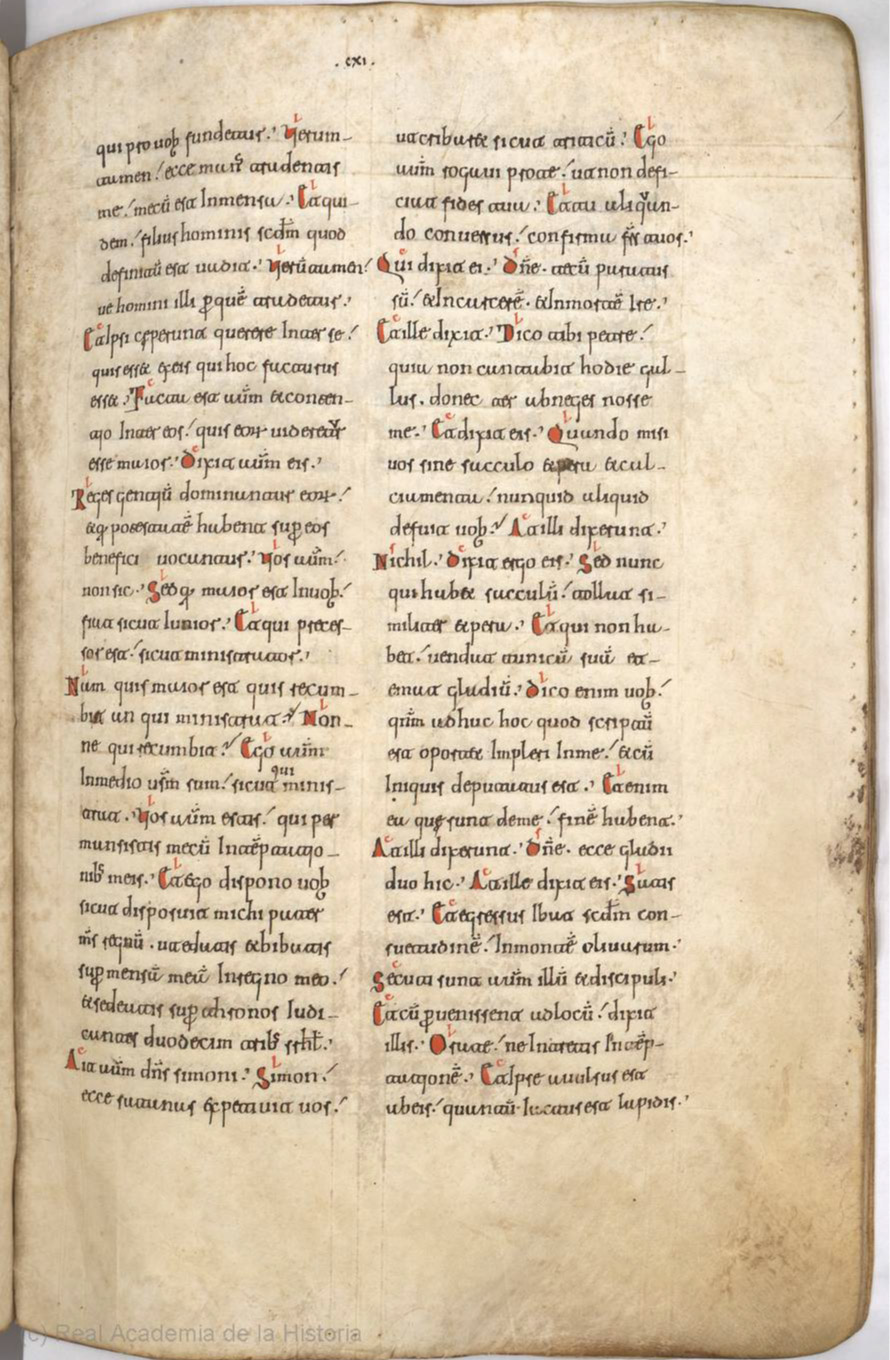 .cxi.
qui pro uoƀ fundetur. Uerum-
tamen ecce man᷒ tradentis
me mecū est Inmensa. Et qui-
dem filius hominis scd̄m quod
definitū est uadit. Uerūtamen
ue homini illi ꝑquē tradetur.
Et ipsi ceperunt querere Inter se
quis esset ex eis qui hoc facturus
esset. Facta est aūm et conten-
tio Inter eos quis eoꝝ uideretur
esse maior. Dixit aūm eis.
Reges gentiū dominantur eoꝝ
et q̄ potestatē habent suꝑ eos
benefici uocantur. Uos aūm
non sic. Sed q̄ maior est Inuoƀ
fiat sicut Iunior. Et qui preces-
sor est sicut ministrator.
Nam quis maior est quis recum-
bit an qui ministrat Non-
ne qui recumbit Ego aūm
Inmedio ūsm sum sicut qui minis-
trat. Uos aūm estis qui per
mansistis mecū Intēptatio-
niƀ meis. Et ego dispono uoƀ
sicut disposuit michi pater
m̄s regnū. ut edatis et bibatis
suꝑ mensā meā Inregno meo.
et sedeatis suꝑ thronos Iudi-
cantes duodecim triƀ srhl̄.
Ait aūm dn̄s simoni. Simon
ecce satanas expetiuit uos
ut cribaret sicut triticū. Ego
aūm rogaui pro te ut non defi-
ciat fides tua. Et tu aliqūan-
do conuersus confirma fr̄s tuos.
Qui dixit ei. Dn̄e. tecū paratus
sū et Incarcerē. et Inmortē Ire.
Et ille dixit. Dico tibi petre
quia non cantabit hodie gal-
lus. donec ter abneges nosse
me. Et dixit eis. Quando misi
uos sine sacculo et pera et cal-
ciamenta nunquid aliquid
defuit uoƀ At illi dixerunt.
Nichil. Dixit ergo eis. Sed nunc
qui habet sacculū tollat si-
militer et pera. Et qui non ha-
bet uendat tunicā suā et e-
mat gladiū. Dico enim uoƀ
qn̄m adhuc hoc quod scriptū
est oportet Impleri Inme et cū
Iniquis deputatus est. Et enim
ea que sunt de me finē habent.
At illi dixerunt. Dn̄e. ecce gladii
duo hic. At ille dixit eis. Satis
est. Et egressus Ibat scd̄m con-
suetudinē Inmontē oliuarum.
Secuti sunt aūm illū et discipuli.
Et cū ꝑuenissent ad locū dixit
illis. Orate ne Intretis Intēp-
tationē. Et ipse auulsus est
ab eis quantū iactus est lapidis.
(c) Real Academia de la Historia